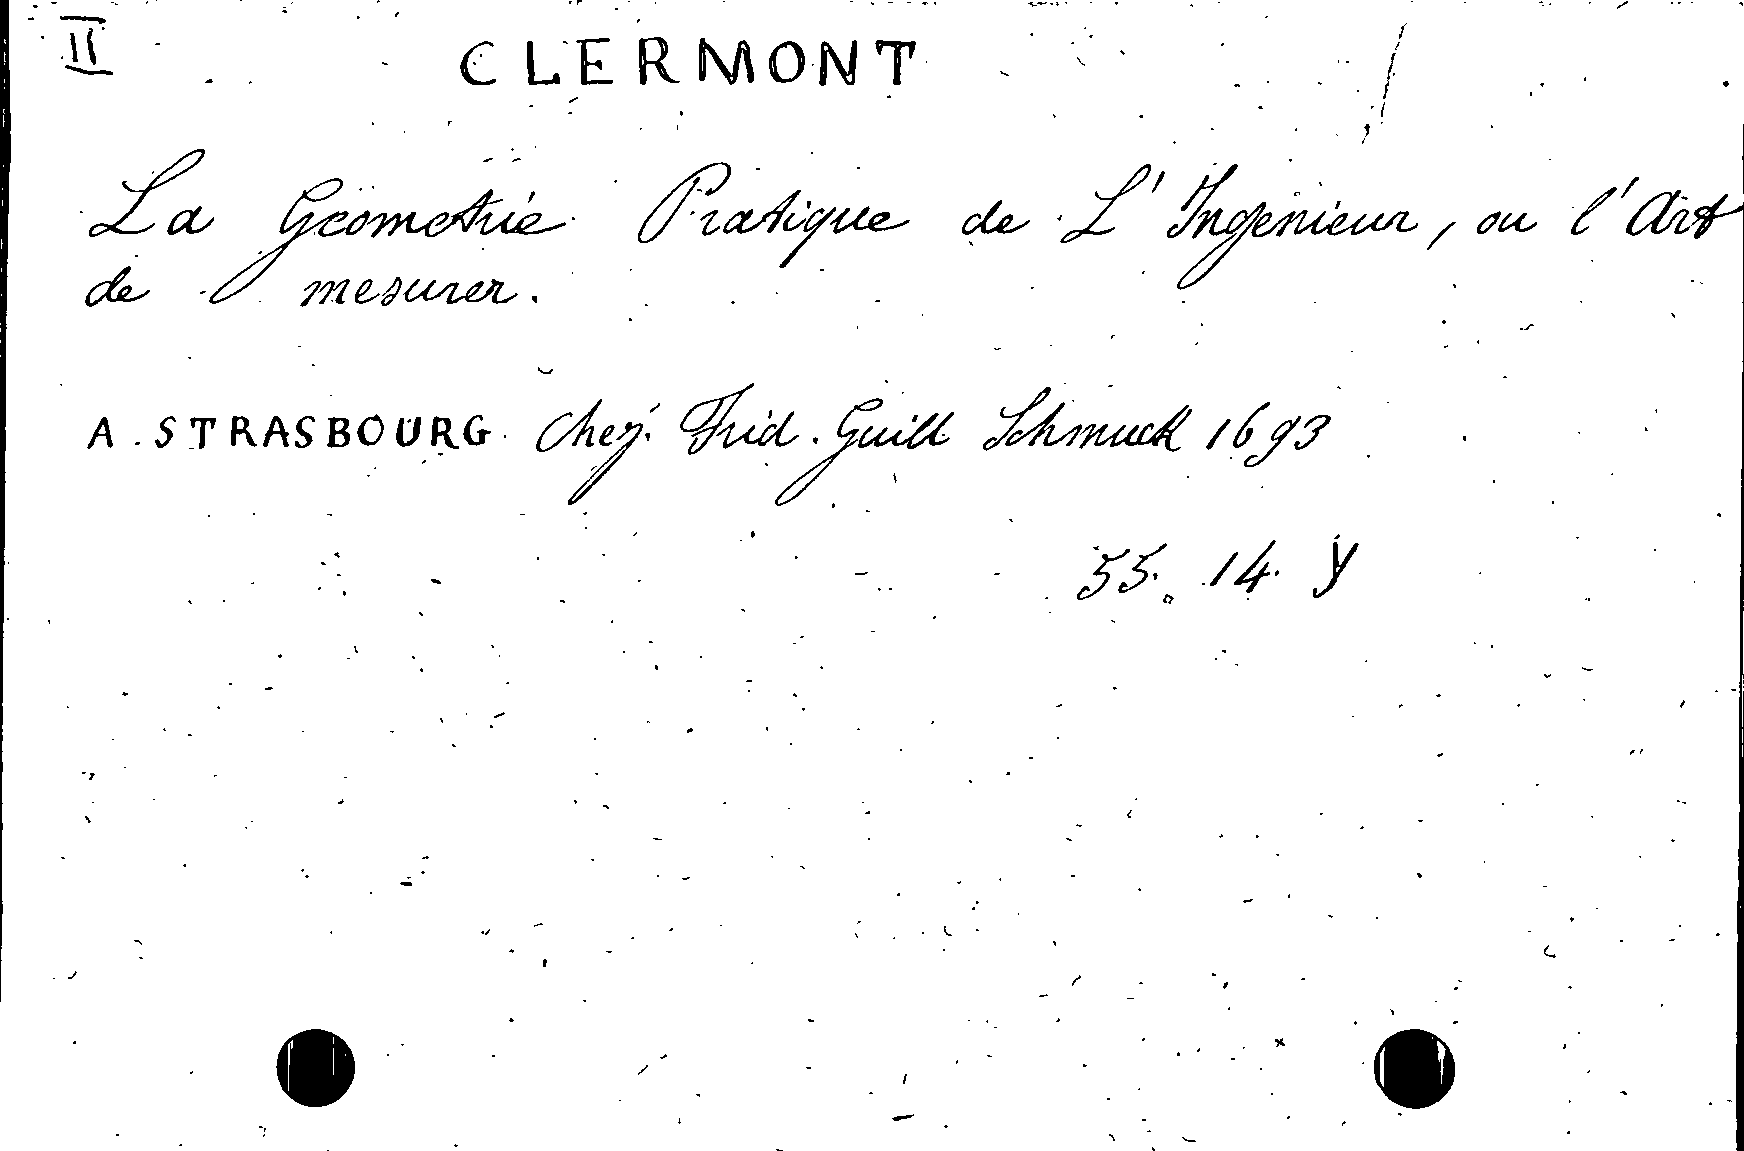 II
CLERMONT
La Geometrie Pratique de L'Ingenieur, ou l'Art
de mesurer.
A. STRASBOURG. Chez. Frid. Guill Schmuck 1693
55. 14. y